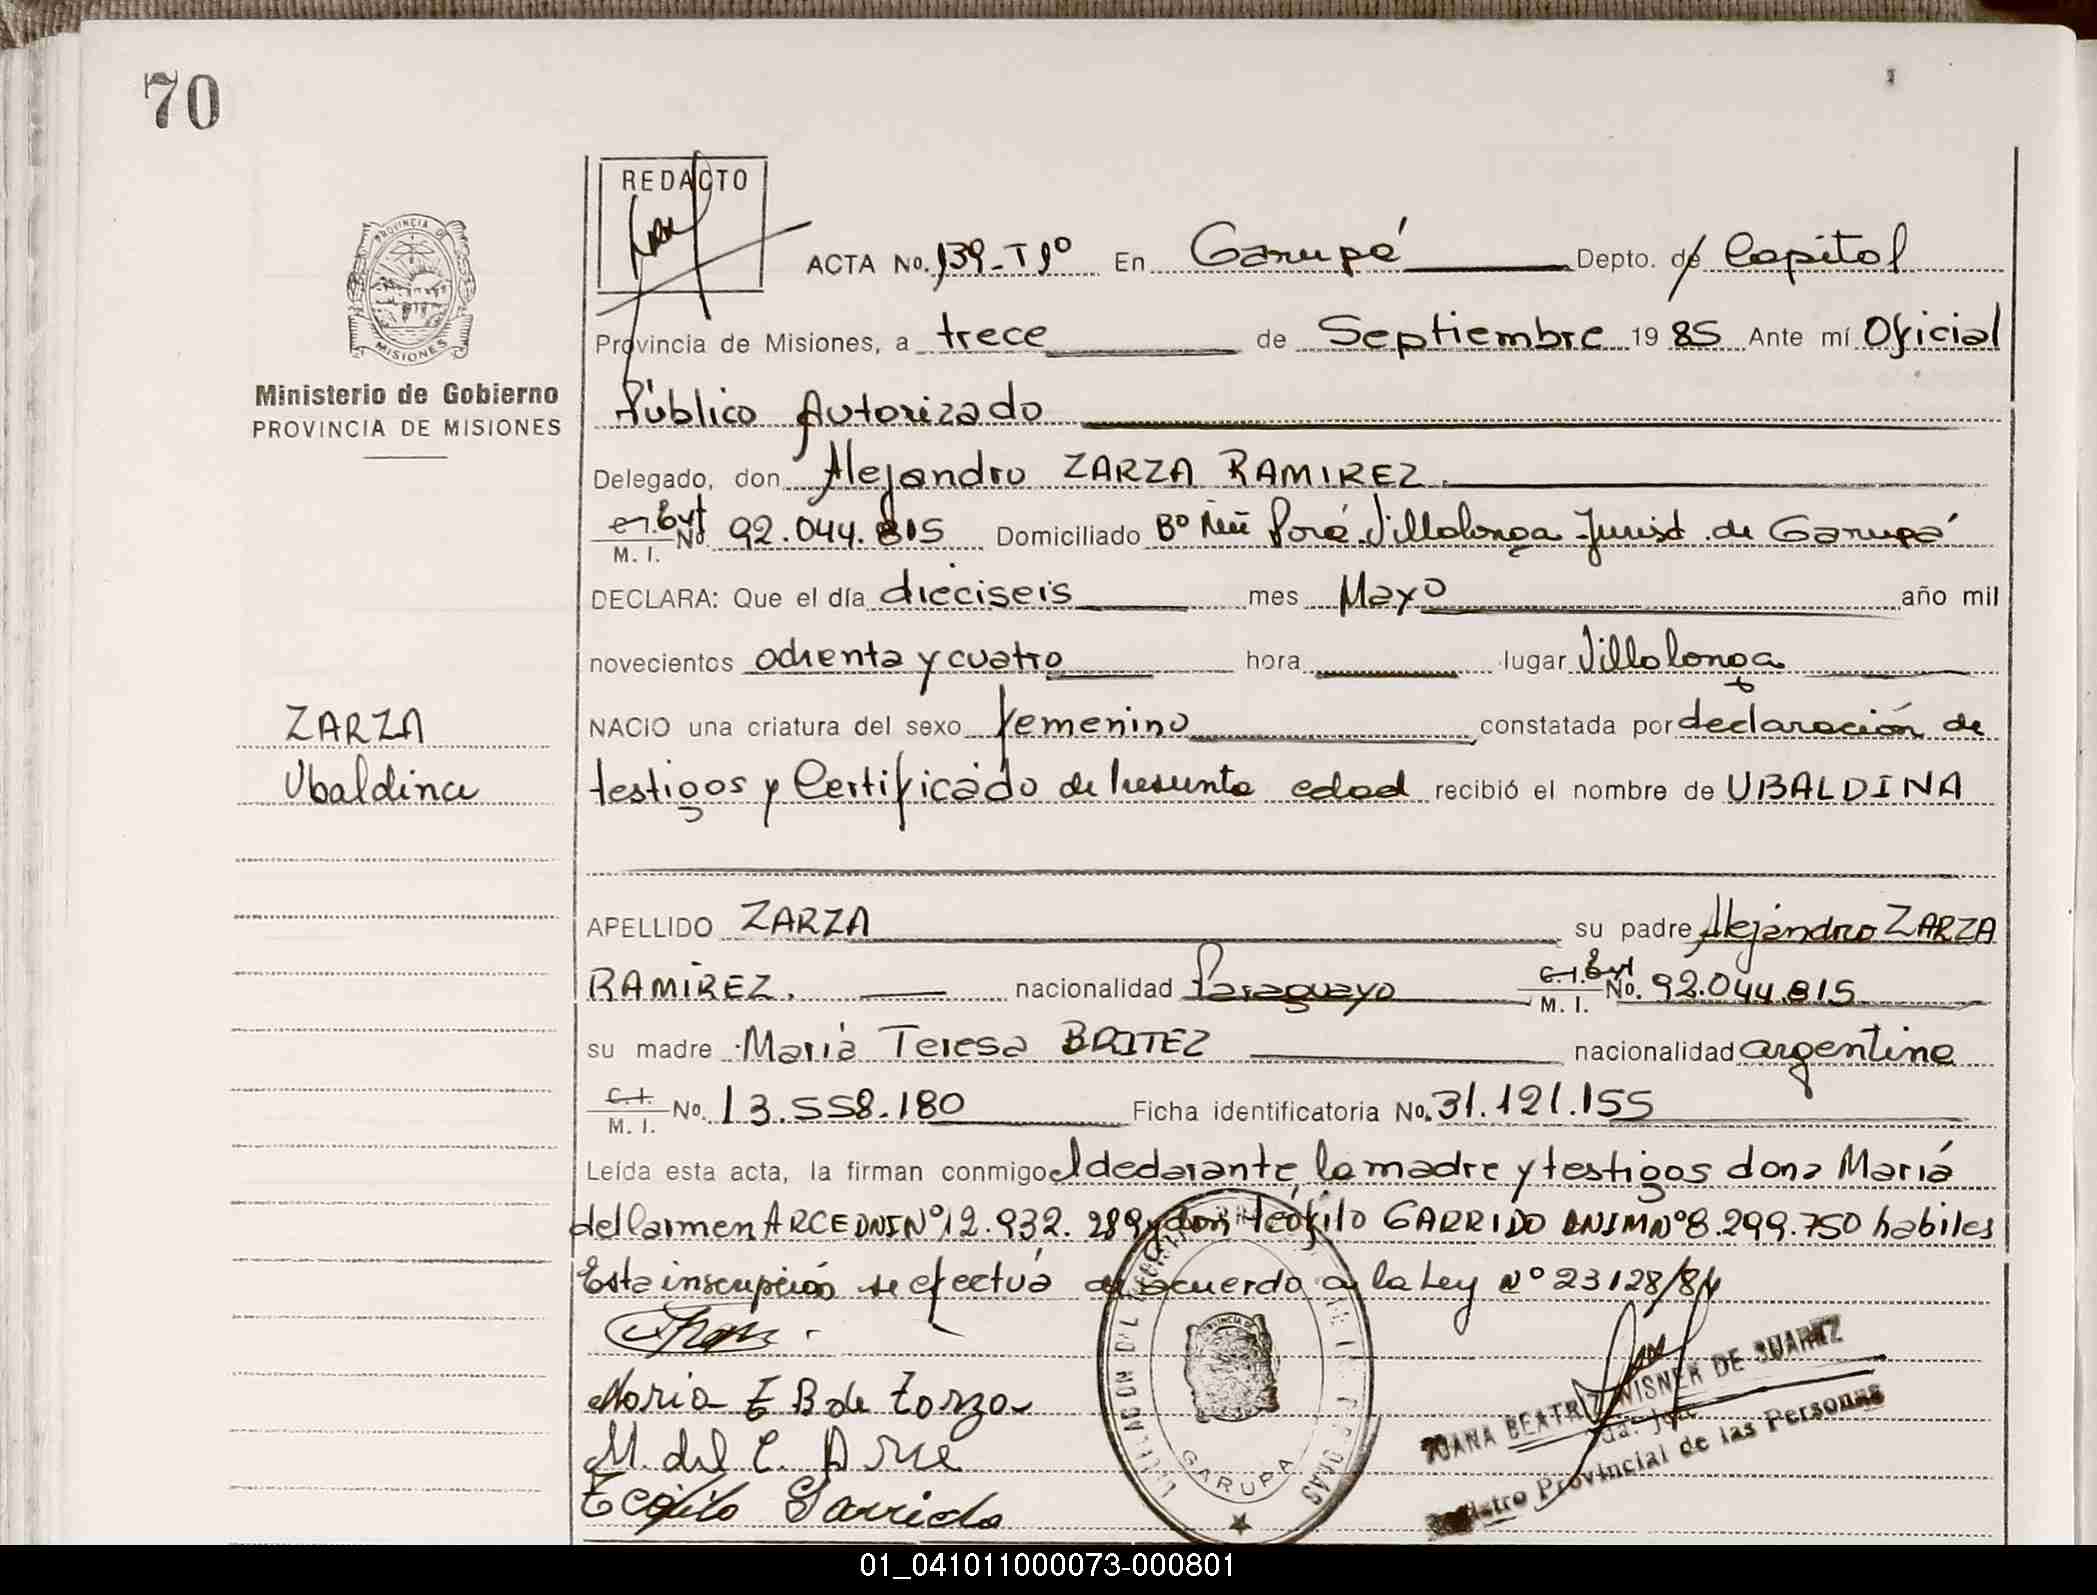 70
REDACTO
ACTA No. 139-Tº1º En Garupá Depto. de Capital
Provincia de Misiones, a trece de Septiembre 1985 Ante mí Oficial
Ministerio de Gobierno
PROVINCIA DE MISIONES
Público Autorizado
Delegado, don Alejandro ZARZA RAMIREZ.
C.I. Ext M. I. No. 92.044.815 Domiciliado Bº Ñu Porá Villalonga Jurisd. de Garupá
DECLARA: Que el día dieciseis mes Mayo año mil
novecientos ochenta y cuatro hora lugar Villalonga
ZARZA
Ubaldina
NACIO una criatura del sexo femenino constatada por declaración de
testigos y Certificado de presunta edad recibió el nombre de UBALDINA
APELLIDO ZARZA su padre Alejandro ZARZA
RAMIREZ. nacionalidad Paraguayo C.I. Ext M. I. No. 92.044.815
su madre Maria Teresa BRITEZ nacionalidad argentina
C.I. M. I. No. 13.558.180 Ficha identificatoria No. 31.121.155
Leída esta acta, la firman conmigo el declarante, la madre y testigos dona Mariá
del Carmen ARCE DNI Nº 12.932.289 y don Teófilo GARRIDO DNI M Nº 8.299.750 habiles
Esta inscripción se efectuá de acuerdo a la Ley Nº 23128/84
Maria T B de Zarza
M. del C. Arce
Teófilo Garrido
GARUPA
JUANA BEATRIZ WISNER DE SUAREZ
Registro Provincial de las Personas
01_041011000073-000801